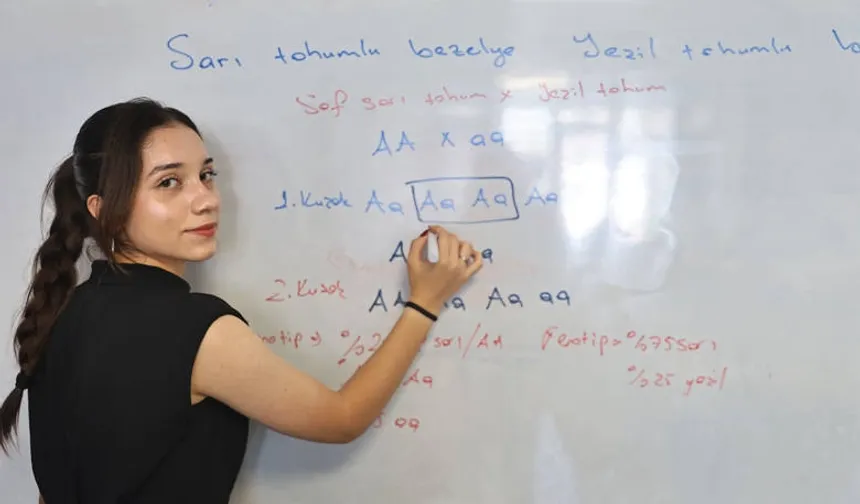 Sarı tohumlu bezelye Yezil tohumlu
Saf sarı tohum x Yezil tohum
AA x aa
1. Kuzak Aa Aa Aa Aa
2. Kuzak AA Aa Aa aa
sarı/AA Fenotip= %75 sarı
Aa %25 yezil
aa